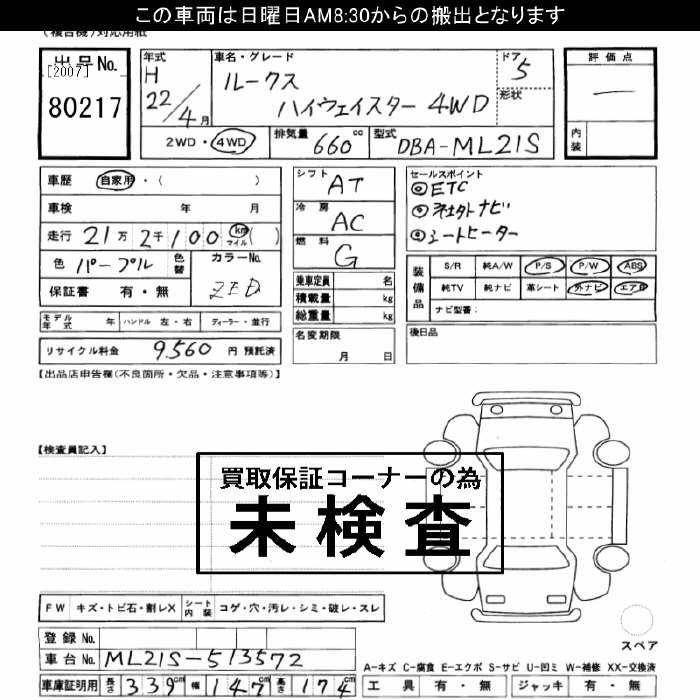 この車両は日曜日AM8:30からの搬出となります
(複合機)対応用紙
出品No.
[2007]
80217
年式 H 22/4月
車名・グレード ルークス ハイウェイスター 4WD
ドア 5
形状
2WD・4WD 排気量 660 cc 型式 DBA-ML21S
評価点
―
内装
車歴 自家用・( )
車検 年 月
走行 21万2千100 km マイル ( )
色 パープル 色替 カラーNo. ZED
保証書 有・無
モデル年式 年 ハンドル 左・右 ディーラー・並行
リサイクル料金 9,560 円 預託済
シフト AT
冷房 AC
燃料 G
乗車定員 名
積載量 kg
総重量 kg
名変期限 月 日
セールスポイント
①ETC
②社外ナビ
③シートヒーター
装備品 S/R 純A/W P/S P/W ABS
純TV 純ナビ 革シート 外ナビ エアB
ナビ型番:
後日品
【出品店申告欄(不良箇所・欠品・注意事項等)】
【検査員記入】
買取保証コーナーの為
未検査
FW キズ・トビ石・割レX シート内装 コゲ・穴・汚レ・シミ・破レ・スレ
登録No.
車台No. ML21S-513572
車庫証明用 長さ 339cm 幅 147cm 高さ 174cm
スペア
A-キズ C-腐食 E-エクボ S-サビ U-凹ミ W-補修 XX-交換済
工具 有・無 ジャッキ 有・無